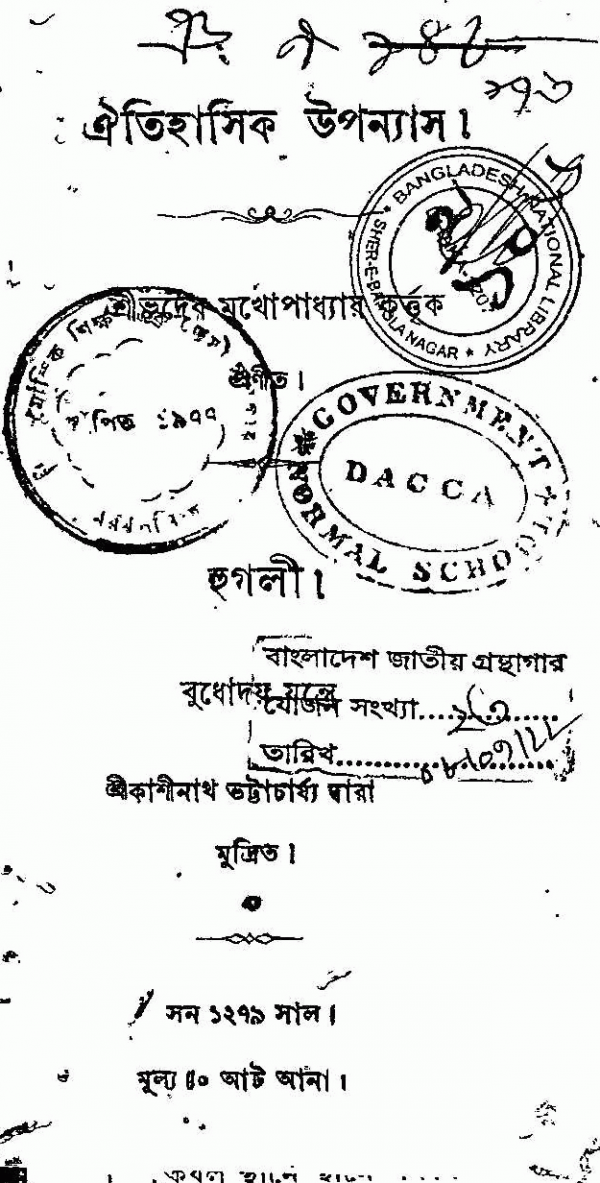 ঐতিহাসিক উপন্যাস।
BANGLADESH NATIONAL LIBRARY
SHER-E-BANGLA NAGAR
শ্রীভূদেব মুখোপাধ্যায় কর্ত্তৃক
প্রণীত।
১৯৭৭
GOVERNMENT
DACCA
NORMAL SCHOOL
হুগলী।
বাংলাদেশ জাতীয় গ্রন্থাগার
বুধোদয় যন্ত্রে
যোজন সংখ্যা
তারিখ
শ্রীকাশীনাথ ভট্টাচার্য্য দ্বারা
মুদ্রিত।
সন ১২৭৯ সাল।
মূল্য ॥০ আট আনা।